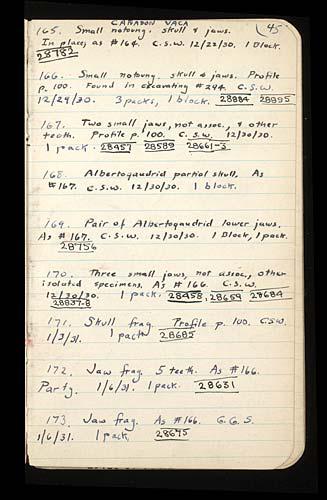 CAÑADON VACA
45
165. Small notoung. skull & jaws.
In place, as #164. C.S.W. 12/23/30. 1 Block.
28782
166. Small notoung. skull & jaws. Profile
p. 100. Found in excavating #244. C.S.W.
12/29/30. 3 packs, 1 block. 28884 28895
167. Two small jaws, not assoc., & other
teeth. Profile p. 100. C.S.W. 12/30/30.
1 pack. 28457 28589 28661-3
168. Albertogaudrid partial skull. As
#167. C.S.W. 12/30/30. 1 block.
169. Pair of Albertogaudrid lower jaws.
As #167. C.S.W. 12/30/30. 1 Block, 1 pack.
28756
170. Three small jaws, not assoc., other
isolated specimens. As #166. C.S.W.
12/30/30. 1 pack. 28458, 28659 28684
28837-8
171. Skull frag. Profile p. 100. C.S.W.
1/3/31. 1 pack 28685
172. Jaw frag. 5 teeth. As #166.
Party. 1/6/31. 1 pack. 28631
173. Jaw frag. As #166. G.G.S.
1/6/31. 1 pack. 28695